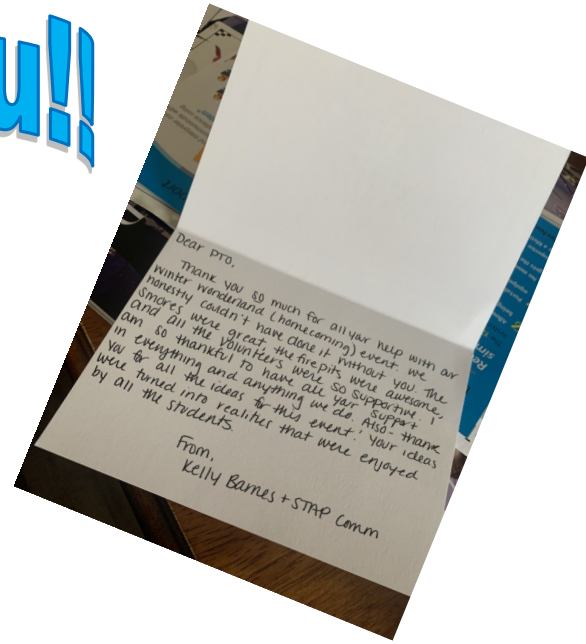 u!!
Dear PTO,
Thank you so much for all your help with our
winter wonderland (homecoming) event. We
honestly couldn't have done it without you. The
smores were great, the firepits were awesome,
and all the volunteers were so supportive. I
am so thankful to have all your support
in everything and anything we do. Also - thank
you for all the ideas for this event! Your ideas
were turned into realities that were enjoyed
by all the students.
From,
Kelly Barnes + STAP Comm